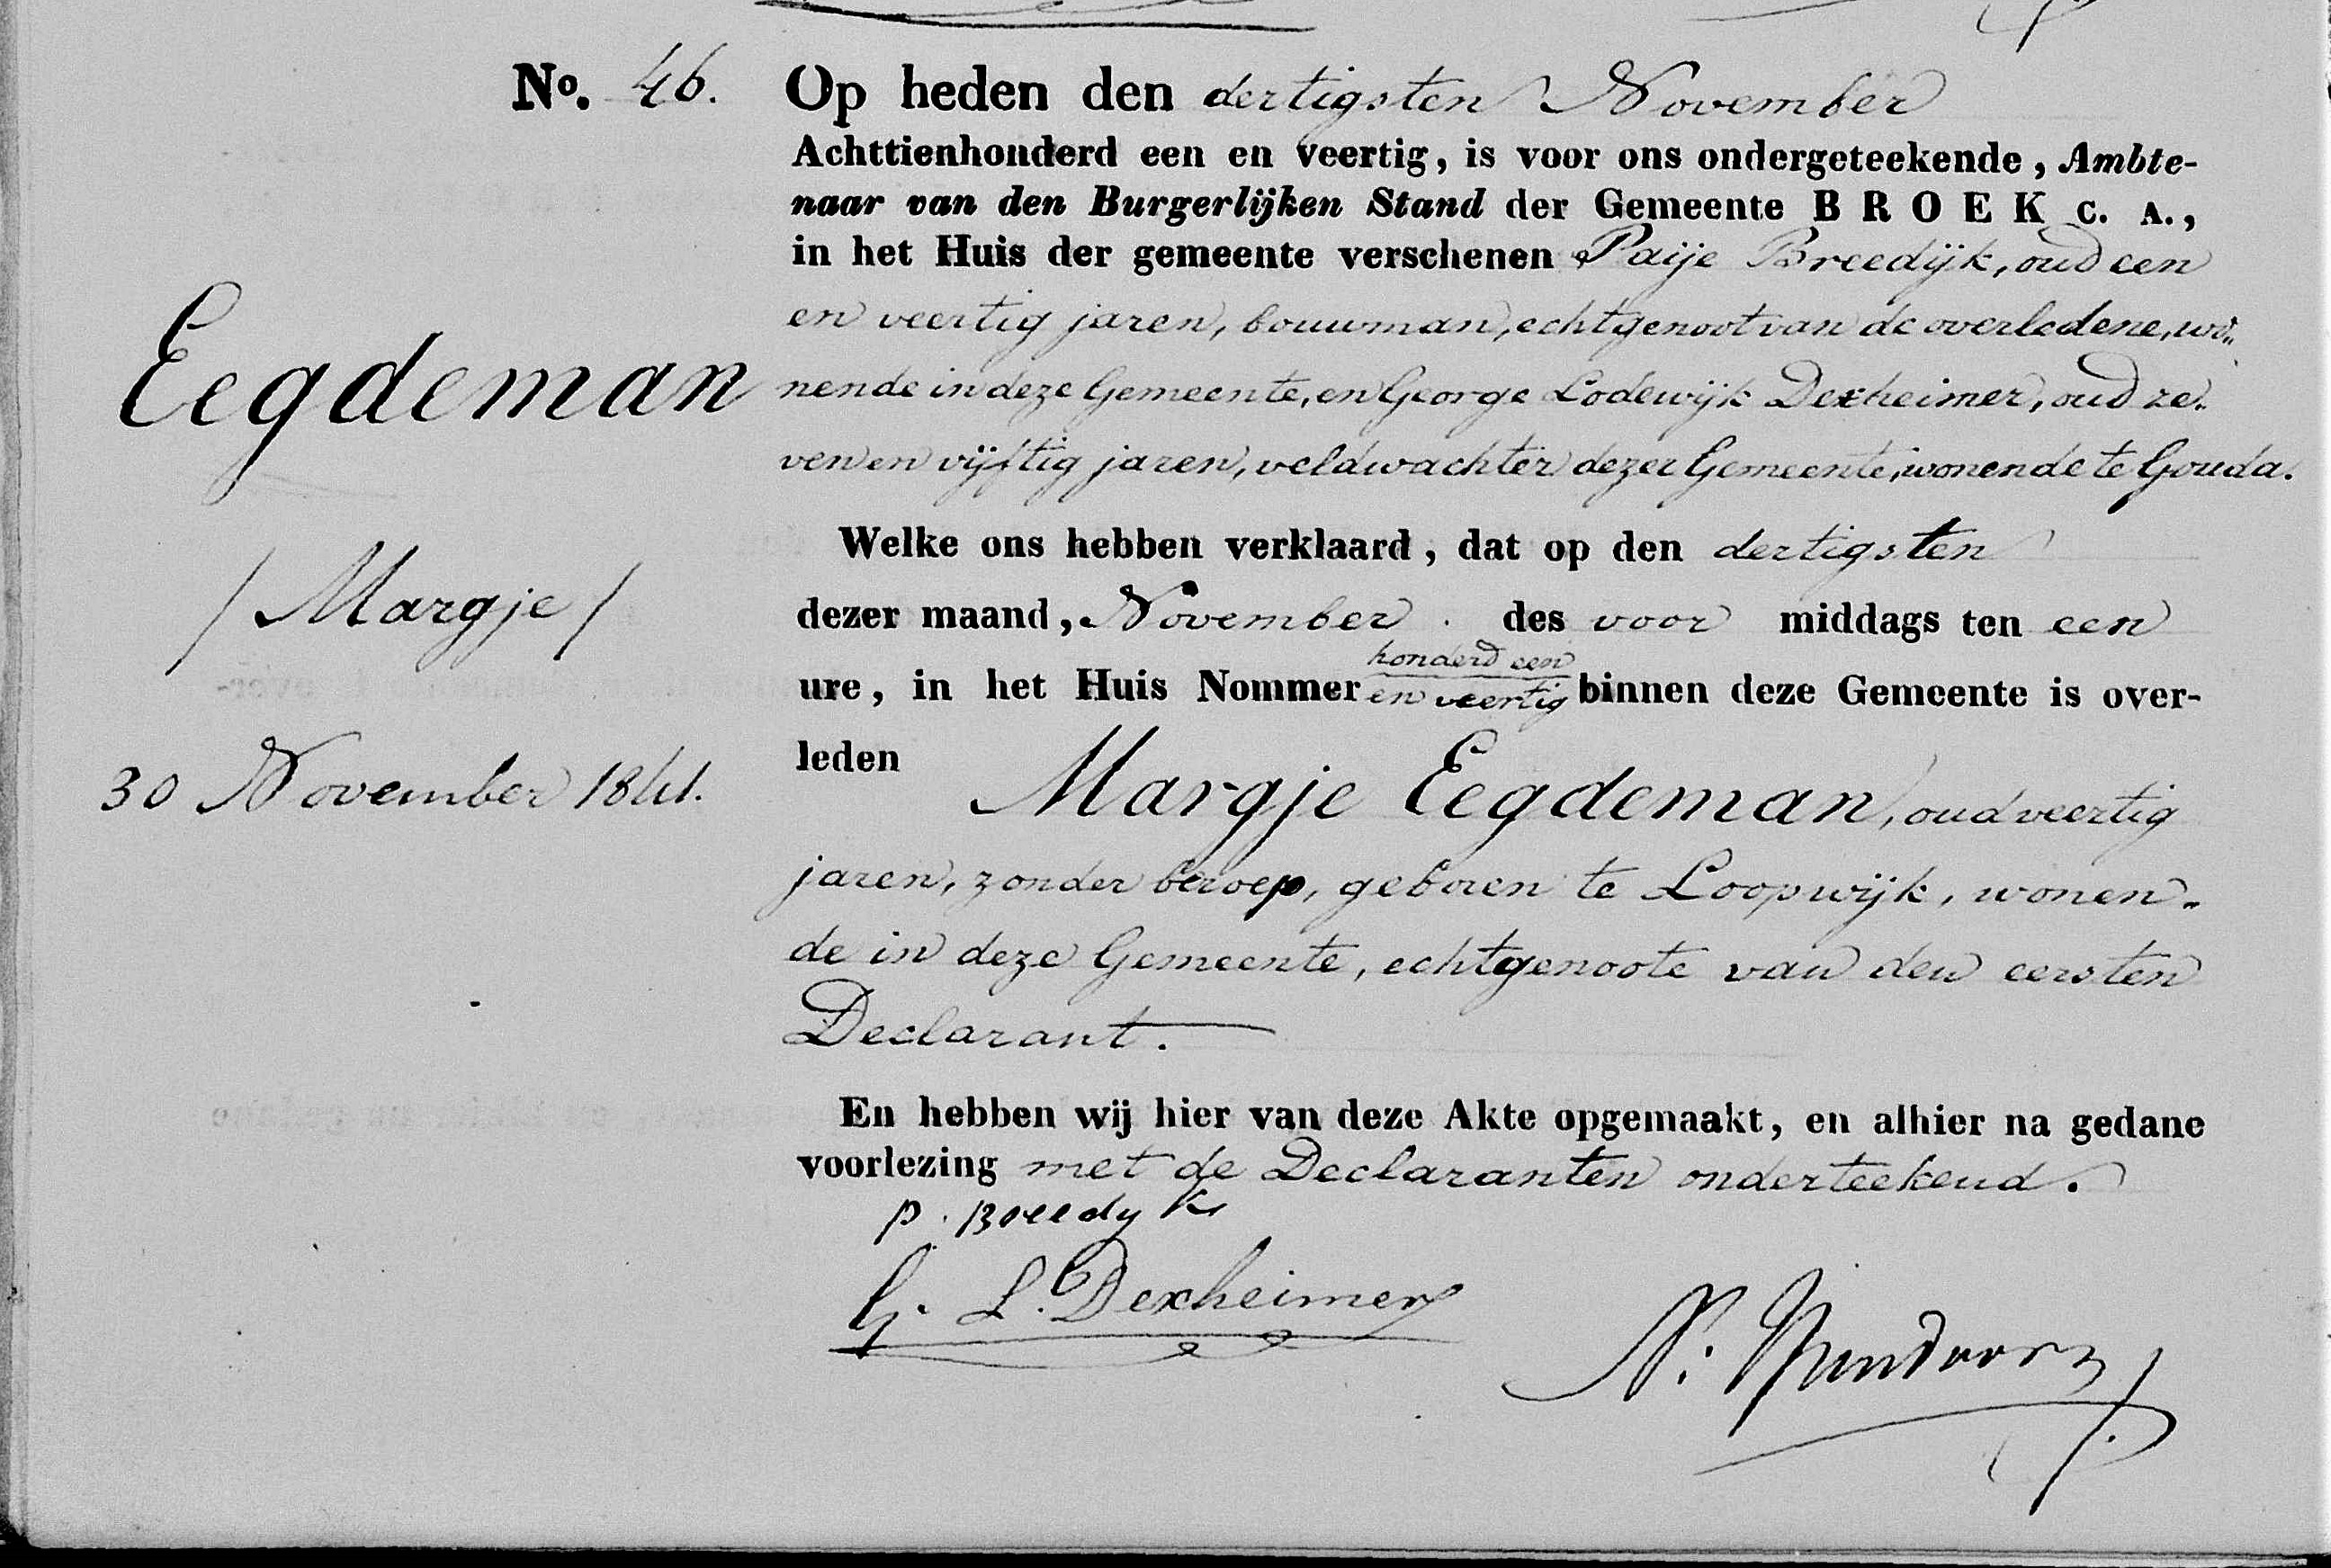 No. 46.
Op heden den dertigsten November
Achttienhonderd een en veertig, is voor ons ondergeteekende, Ambte-
naar van den Burgerlijken Stand der Gemeente BROEK C. A.,
in het Huis der gemeente verschenen Paije Breedijk, oud een
en veertig jaren, bouwman, echtgenoot van de overledene, wo„
nende in deze Gemeente, en George Lodewijk Dexheimer, oud ze„
ven en vijftig jaren, veldwachter dezer Gemeente, wonende te Gouda.
Welke ons hebben verklaard, dat op den dertigsten
dezer maand, November des voor middags ten een
ure, in het Huis Nommer honderd een en veertig binnen deze Gemeente is over-
leden
Margje Eegdeman, oud veertig
jaren, zonder beroep, geboren te Loopwijk, wonen„
de in deze Gemeente, echtgenoote van den eersten
Declarant.
En hebben wij hier van deze Akte opgemaakt, en alhier na gedane
voorlezing met de Declaranten onderteekend.
p. Breedyk
G. L. Dexheimer
N:
Eegdeman
/ Margje /
30 November 1841.